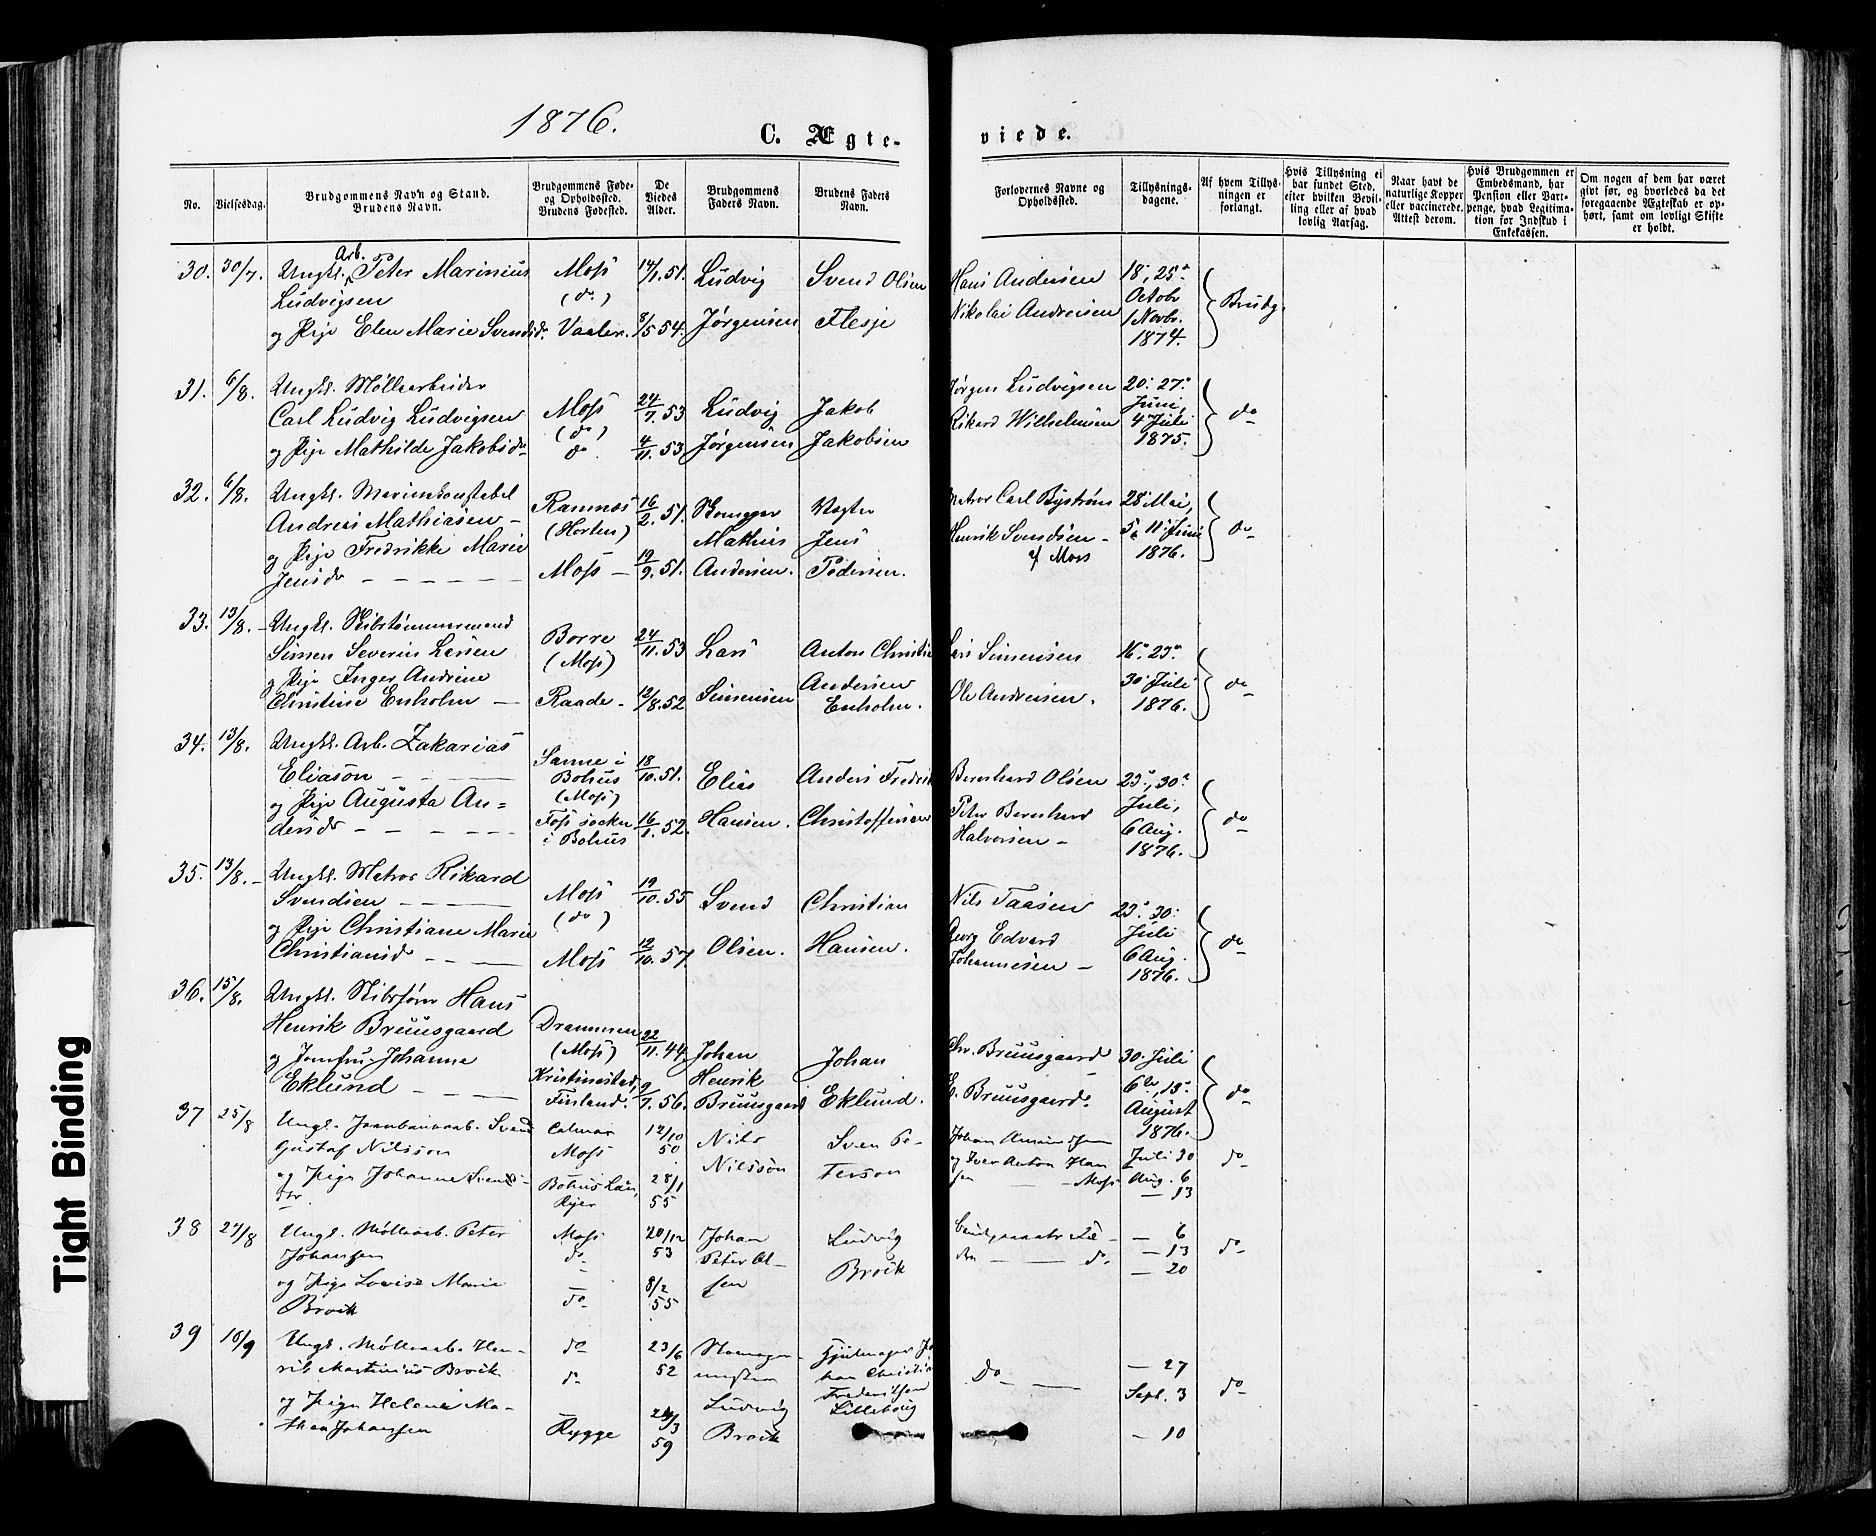 1876.
C. Ægte-
viede.
No.
Vielsesdag.
Brudgommens Navn og Stand.
Brudens Navn.
Brudgommens Føde-
og Opholdssted.
Brudens Fødested.
De
Viedes
Alder.
Brudgommens
Faders Navn.
Brudens Faders
Navn.
Forlovernes Navne og
Opholdssted.
Tillysnings-
dagene.
Af hvem Tillys-
ningen er
forlangt.
Hvis Tillysning ei
har fundet Sted,
efter hvilken Bevil-
ling eller af hvad
lovlig Aarsag.
Naar havt de
naturlige Kopper
eller vaccinerede.
Attest derom.
Hvis Brudgommen er
Embedsmand, har
Pension eller Vart-
penge, hvad Legitima-
tion for Indskud i
Enkekassen.
Om nogen af dem har været
givt før, og hvorledes da det
foregaaende Ægteskab er op-
hørt, samt om lovligt Skifte
er holdt.
30. 30/7. Ungkl. Arb. Peter Marinius Moss 14/1.51. Ludvig Svend Olsen Hans Andersen 18., 25de
Ludvigsen (do.) Octobr
og Pige Elen Marie Svendsdr. Vaaler. 8/5 54. Jørgensen Flesje Nikolai Andreisen 1 Novbr. Brudg.
1874.
31. 6/8. Ungkl. Møllearbeider Jørgen Ludvigsen 20. 27.
Carl Ludvig Ludvigsen Moss 24/7.53 Ludvig Jakob Juni, do
(do) Rikard Wilhelmsen 4de Juli
og Pige Mathilde Jakobsdr do. 4/11.53 Jørgensen Jakobsen 1875.
32. 6/8. Ungkl. Marinekonstabel Ramnæs 16/2.51. Vægter Matros Carl Byström 28 Mai,
Andreas Mathiasen (Horten) Mathias Jens Henrik Svendsen 5, 11. Juni do
og Pige Fredrikke Marie af Moss 1876.
Jensdr Moss 19/9.51. Andersen. Pedersen.
33. 13/8. Ungkl. Skibstømmermand Borre 24/11.53 Lars Anton Christian Lars Simensen 16. 23.
Simen Severin Larsen (Moss)
og Pige Inger Andrine Andersen 30 Juli do
Christine Enholm Raade 12/8.52 Simensen Enholm. Ole Andreisen. 1876.
34. 13/8. Ungkl. Arb. Zakarias Sanne i 18/10.51. Bernhard Olsen 23., 30.
Eliason Bohus Elias Anders Fredrik Juli,
og Pige Augusta An- (Moss) Peter Bernhard 6 Aug. do
dersdr Foss socken 16/1.52. Hansen. Christoffersen Halvorsen 1876.
i Bohus
35. 13/8. Ungkl. Matros Rikard Moss 19/10.55 Svend Christian Nils Taasen 23. 30.
Svendsen (do) Juli
og Pige Christiane Marie Georg Edvard 6 Aug. do
Christiansd Moss 12/10.57. Olsen. Hansen. Johannesen 1876.
36. 15/8. Ungkl. Skibsfører Hans
Henrik Bruusgaard Drammen 22/11.44. Johan Johan Chr. Bruusgaard 30 Juli
og Jomfru Johanne (Moss) Henrik 6te, 13. do
Eklund Kristinestad, 9/7.56. Bruusgaard Eklund. E. Bruusgaard. August
Finland. 1876.
37 25/8 Ungk. Svend Calmar 12/10 Nils Sven Pe- Johan
Gustaf Nilsson Moss 50 Nilsson terson og Iver Anton Han Juli 30 do
og Pige Johanne Svens- Bohus Län, 28/1 sen Moss Aug. 6
dtr 55 — 13
38 27/8 Ungk. Møllearb. Peter Moss 20/12 Johan Ludvig — 6
Johansen do 53 Peter Ol- Brock do — 13 do
og Pige Lovise Marie 8/2 sen — 20
Brock do 55
39 10/9 Ungk. Møllearb. Hen- do 23/6 Hjulmager Jo
rik Martinius Brock do 52 han Christian Do — 27
og Pige Helene Ma- Ludvig Frederiksen Sept. 3 do
thea Johansen Rygge 59 Brock Lilleborg — 10
Tight Binding